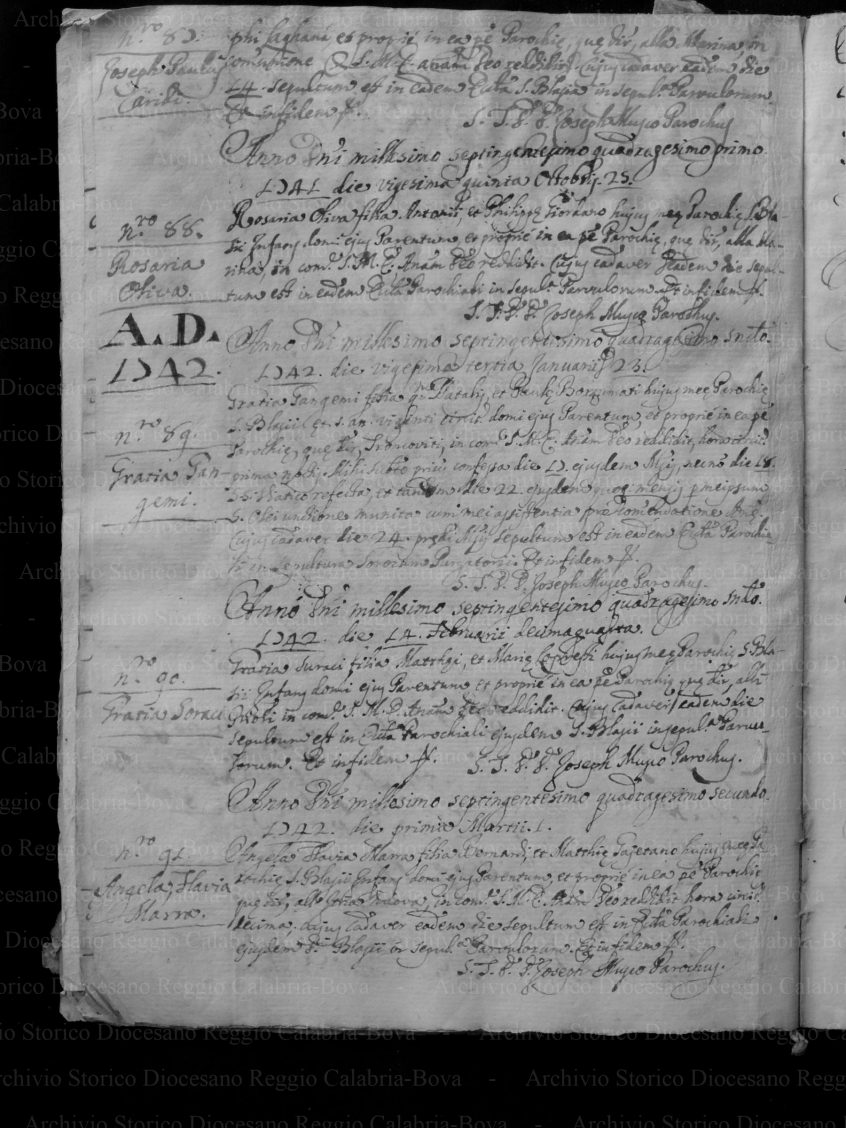 n.ro 87.
Joseph Paulus
Caridi.
phi Saghanà et proprie in ea pē Parochię, quę dir, alla Marina, in
comunione S. M. E. anam Deo reddidit. Cujus cadaver eadem die
14. sepultum est in eadem Eccla S. Blasii in sepul.a Parvulorum
Et in fidem ff.
S. T. D. D. Joseph Mujco Parochus
Anno Dni millesimo septingentesimo quadragesimo primo
1741 die vigesima quinta Octobris. 25.
n.ro 88.
Rosaria
Oliva.
Rosaria Oliva filia Antonii, et Philippę Giordano hujus meę Parochię S. Bla-
sii Infans domi ejus Parentum, et proprie in ea pē Parochię, quę dir, alla Ma-
rina, in com. S. M. E. Anam Deo reddidit. Cujus cadaver eadem die sepul-
tum est in eadem Eccla Parochiali in sepul.a Parvulorum Et in fidem ff.
S. T. D. D. Joseph Mujco Parochus.
A. D.
1742.
Anno Dni millesimo septingentesimo quadragesimo sndo.
1742. die vigesima tertia Januarii 23.
n.ro 89.
Gratia Tan-
gemi.
Gratia Tangemi filia qm Natalis, et Paulę hujus meę Parochię
S. Blasii ę. s. an. viginti circit. domi ejus Parentum, et proprie in ea pē
Parochię, quę dir, in com. S. M. E. Anam Deo reddidit, hora circit.
prima noctis. Mihi subto prius confessa die 17. ejusdem Msis, necnō die 18.
SS. Viatico refecta, et tandem die 22. ejusdem mensis p me ipsum
S. Olei unctione munita cum mei assistentia pro comendatione Anę.
Cujus cadaver die 24. Msis sepultum est in eadem Eccla Parochia-
li in sepultura Sororum Purgatorii. Et in fidem ff.
S. T. D. D. Joseph Mujco Parochus.
Anno Dni millesimo septingentesimo quadragesimo sndo.
1742. die 14. Februarii decimaquarta.
n.ro 90.
Gratia Soraci
Gratia Suraci filia Matthęi, et Marię hujus meę Parochię S. Bla-
sii Infans domi ejus Parentum et proprie in ea pē Parochię quę dir, alli
in com. S. M. E. Anam Deo reddidit. Cujus cadaver eadem die
sepultum est in Eccla Parochiali ejusdem S. Blasii in sepul.a Parvu-
lorum. Et in fidem ff.
S. T. D. D. Joseph Mujco Parochus.
Anno Dni millesimo septingentesimo quadragesimo secundo
1742. die prima Martii. 1.
n.ro 91.
Angela, Flavia
Marra.
Angela Flavia Marra filia Bernardi, et Matthię Gajetano hujus meę Pa-
rochię S. Blasii Infans domi ejus Parentum, et proprie in ea pē Parochię
quę dir, in com. S. M. E. Anam Deo reddidit hora circit.
decima. cujus cadaver eadem die sepultum est in Eccla Parochiali
ejusdem S. Blasii in sepul.a Parvulorum. Et in fidem ff.
S. T. D. D. Joseph Mujco Parochus.
Archivio Storico Diocesano Reggio Calabria-Bova